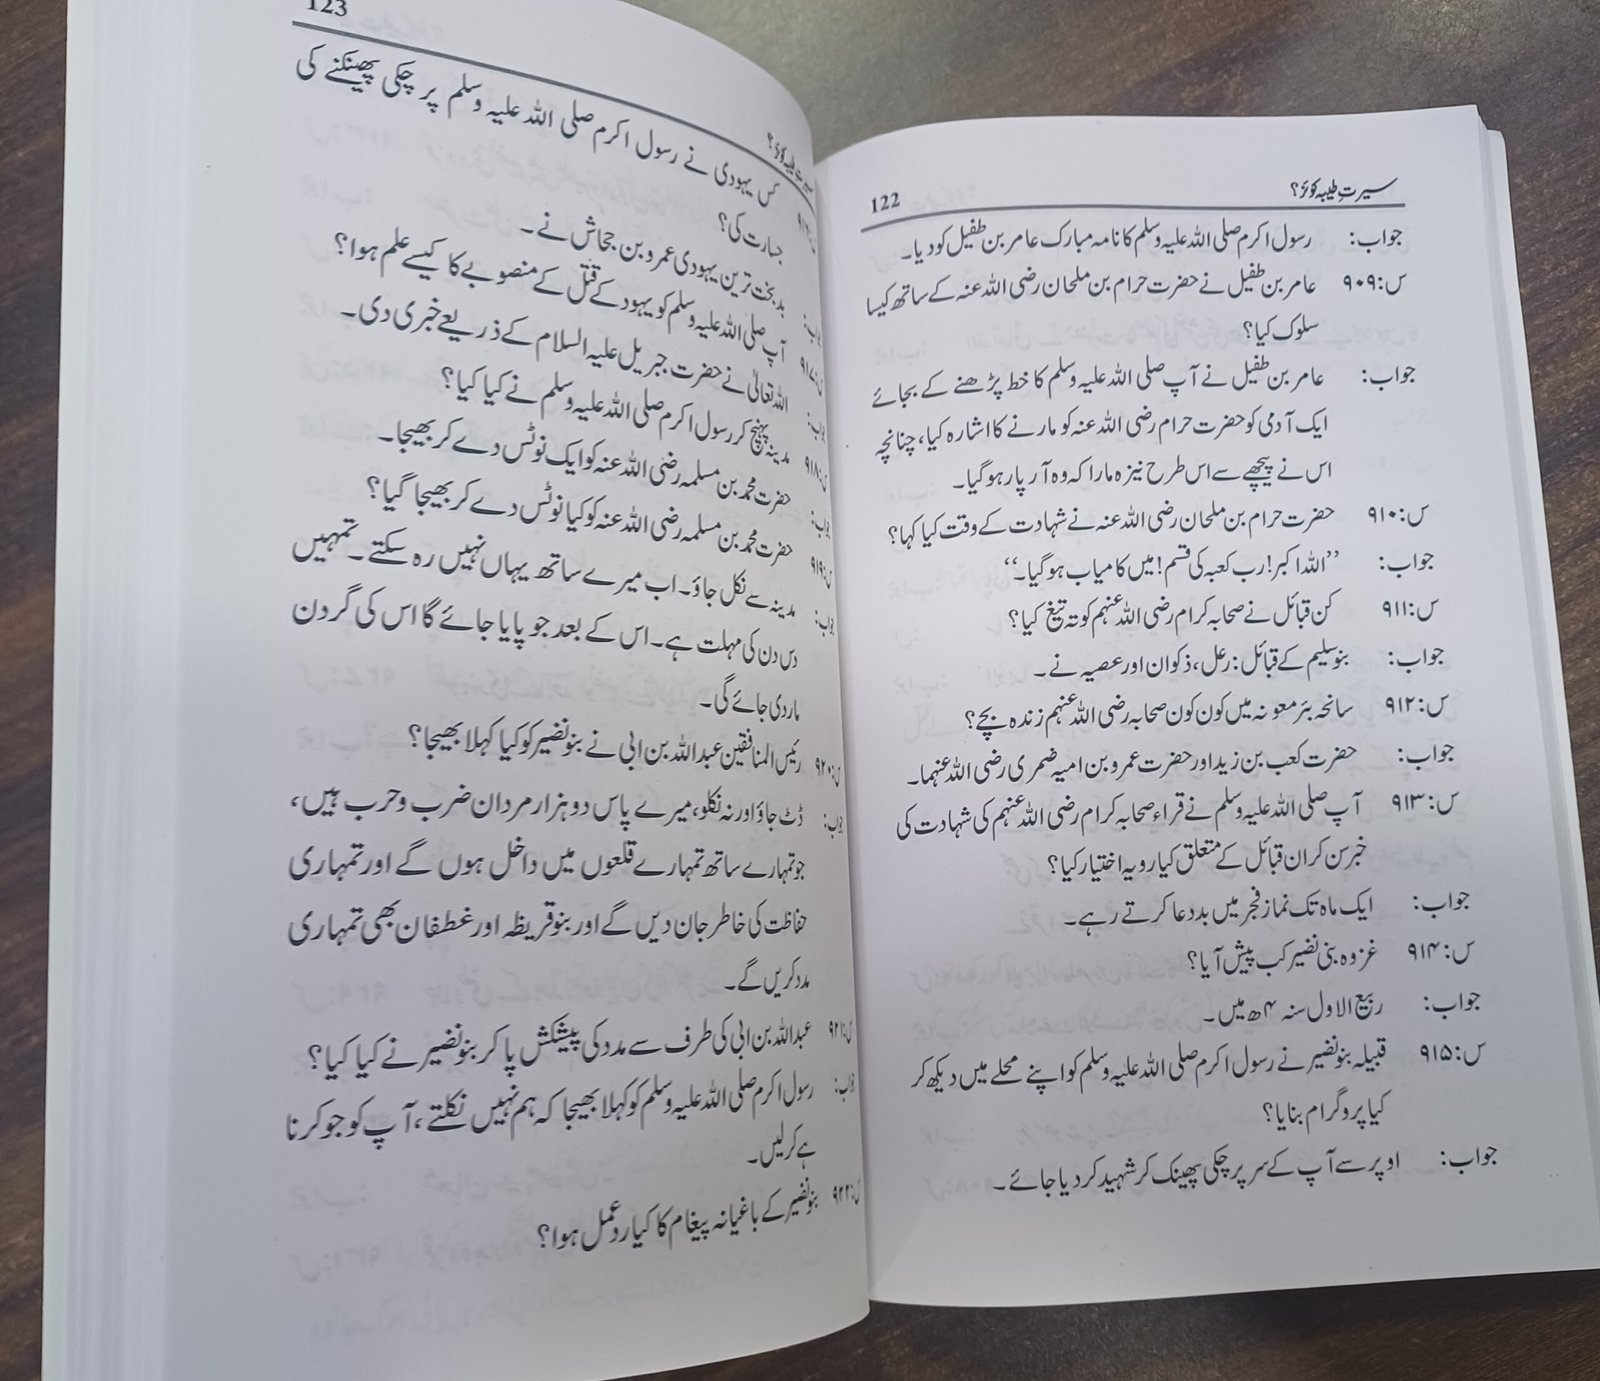 سیرتِ طیبہ کوئز؟ 122
جواب: رسول اکرم صلی اللہ علیہ وسلم کا نامہ مبارک عامر بن طفیل کو دیا۔
س:۹۰۹ عامر بن طفیل نے حضرت حرام بن ملحان رضی اللہ عنہ کے ساتھ کیسا
سلوک کیا؟
جواب: عامر بن طفیل نے آپ صلی اللہ علیہ وسلم کا خط پڑھنے کے بجائے
ایک آدمی کو حضرت حرام رضی اللہ عنہ کو مارنے کا اشارہ کیا، چنانچہ
اس نے پیچھے سے اس طرح نیزہ مارا کہ وہ آر پار ہو گیا۔
س:۹۱۰ حضرت حرام بن ملحان رضی اللہ عنہ نے شہادت کے وقت کیا کہا؟
جواب: ’’اللہ اکبر! رب کعبہ کی قسم! میں کامیاب ہو گیا۔‘‘
س:۹۱۱ کن قبائل نے صحابہ کرام رضی اللہ عنہم کو تہ تیغ کیا؟
جواب: بنو سلیم کے قبائل: رعل، ذکوان اور عصیہ نے۔
س:۹۱۲ سانحہ بئر معونہ میں کون کون صحابہ رضی اللہ عنہم زندہ بچے؟
جواب: حضرت کعب بن زید اور حضرت عمرو بن امیہ ضمری رضی اللہ عنہما۔
س:۹۱۳ آپ صلی اللہ علیہ وسلم نے قراء صحابہ کرام رضی اللہ عنہم کی شہادت کی
خبر سن کر ان قبائل کے متعلق کیا رویہ اختیار کیا؟
جواب: ایک ماہ تک نماز فجر میں بددعا کرتے رہے۔
س:۹۱۴ غزوہ بنی نضیر کب پیش آیا؟
جواب: ربیع الاول سنہ ۴ھ میں۔
س:۹۱۵ قبیلہ بنو نضیر نے رسول اکرم صلی اللہ علیہ وسلم کو اپنے محلے میں دیکھ کر
کیا پروگرام بنایا؟
جواب: اوپر سے آپ کے سر پر چکی پھینک کر شہید کر دیا جائے۔
سیرتِ طیبہ کوئز؟ 123
کس یہودی نے رسول اکرم صلی اللہ علیہ وسلم پر چکی پھینکنے کی
جسارت کی؟
جواب: بدبخت ترین یہودی عمرو بن جحاش نے۔
آپ صلی اللہ علیہ وسلم کو یہود کے قتل کے منصوبے کا کیسے علم ہوا؟
جواب: اللہ تعالیٰ نے حضرت جبریل علیہ السلام کے ذریعے خبری دی۔
س:۹۱۸ مدینہ پہنچ کر رسول اکرم صلی اللہ علیہ وسلم نے کیا کیا؟
جواب: حضرت محمد بن مسلمہ رضی اللہ عنہ کو ایک نوٹس دے کر بھیجا۔
س:۹۱۹ حضرت محمد بن مسلمہ رضی اللہ عنہ کو کیا نوٹس دے کر بھیجا گیا؟
جواب: مدینہ سے نکل جاؤ۔ اب میرے ساتھ یہاں نہیں رہ سکتے۔ تمہیں
دس دن کی مہلت ہے۔ اس کے بعد جو پایا جائے گا اس کی گردن
مار دی جائے گی۔
س:۹۲۰ رئیس المنافقین عبداللہ بن ابی نے بنو نضیر کو کیا کہلا بھیجا؟
جواب: ڈٹ جاؤ اور نہ نکلو، میرے پاس دو ہزار مردان ضرب و حرب ہیں،
جو تمہارے ساتھ تمہارے قلعوں میں داخل ہوں گے اور تمہاری
حفاظت کی خاطر جان دیں گے اور بنو قریظہ اور غطفان بھی تمہاری
مدد کریں گے۔
س:۹۲۱ عبداللہ بن ابی کی طرف سے مدد کی پیشکش پا کر بنو نضیر نے کیا کیا؟
جواب: رسول اکرم صلی اللہ علیہ وسلم کو کہلا بھیجا کہ ہم نہیں نکلتے، آپ کو جو کرنا
ہے کر لیں۔
س:۹۲۲ بنو نضیر کے باغیانہ پیغام کا کیا ردعمل ہوا؟